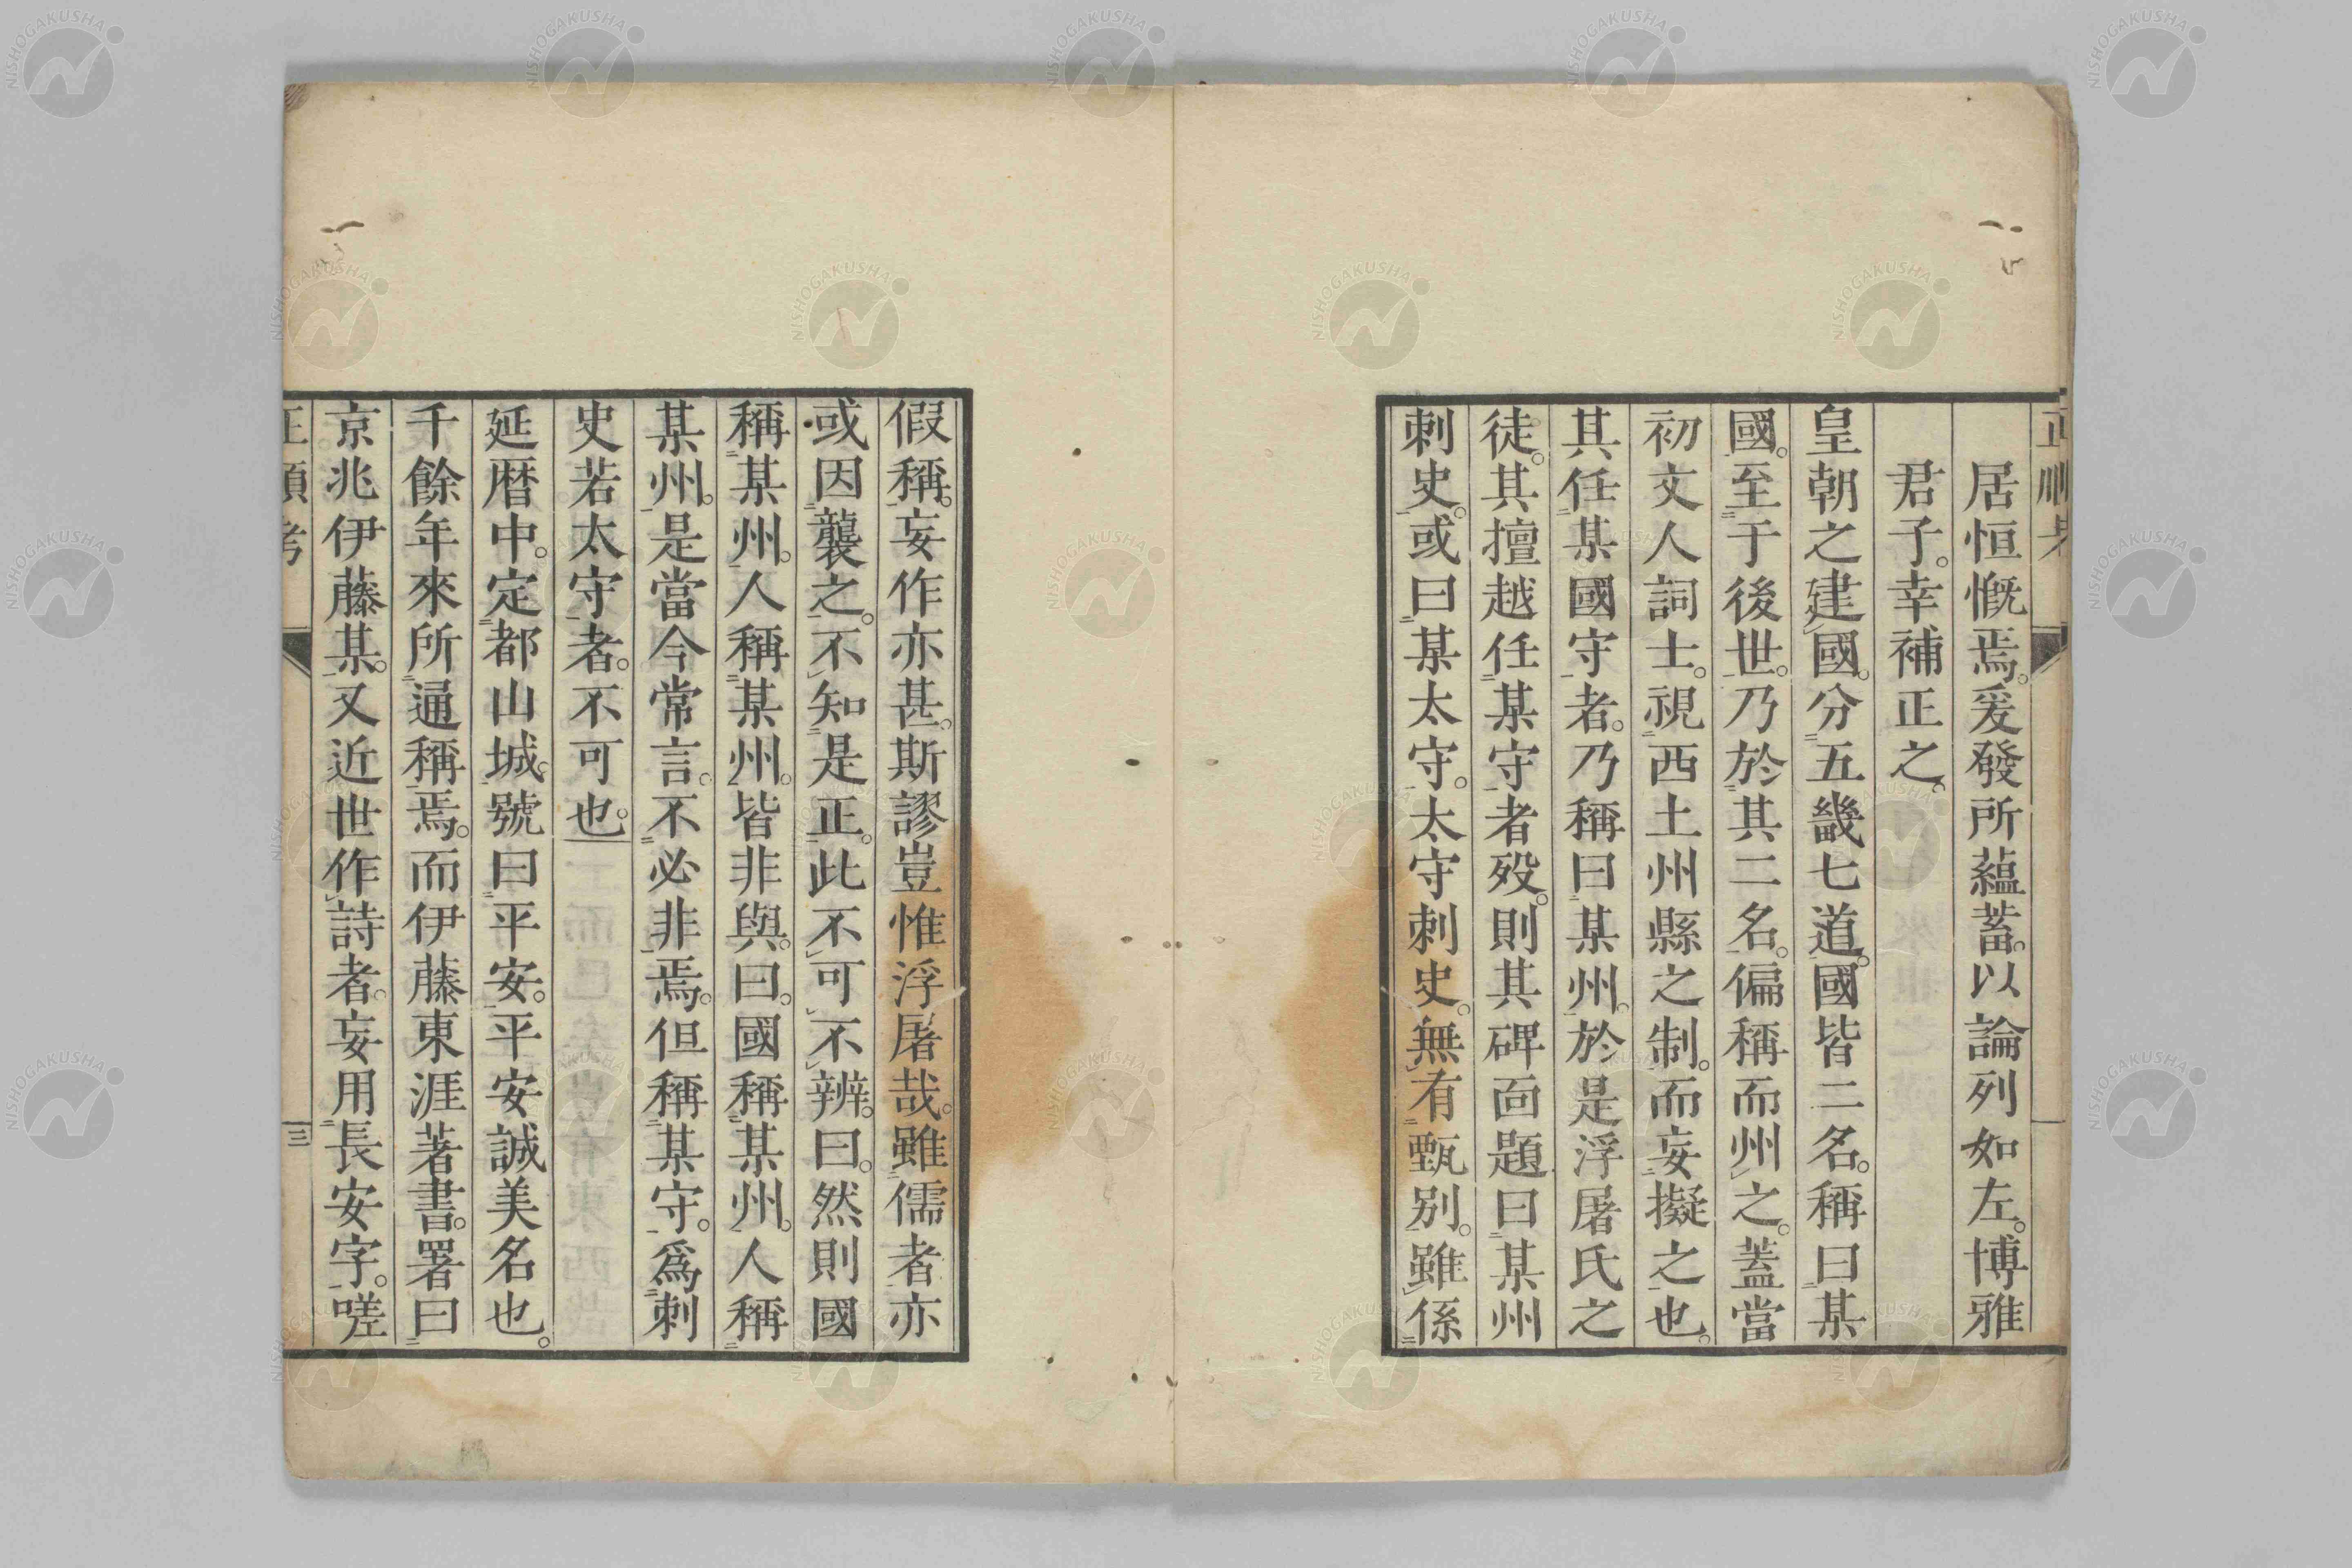 居恒慨焉。爰發所蘊蓄。以論列如左。博雅
君子。幸補正之。
皇朝之建國。分五畿七道。國皆二名。稱曰某
國。至于後世。乃於其二名。偏稱而州之。蓋當
初文人詞士。視西土州縣之制。而妄擬之也。
其任某國守者。乃稱曰某州。於是浮屠氏之
徒。其擅越任某守者歿。則其碑面題曰某州
刺史。或曰某太守。太守刺史。無有甄別。雖係
假稱。妄作亦甚。斯謬豈惟浮屠哉。雖儒者亦
或因襲之。不知是正。此不可不辨。曰。然則國
稱某州。人稱某州。皆非與。曰。國稱某州。人稱
某州。是當今常言。不必非焉。但稱某守。爲刺
史若太守者。不可也。
延曆中。定都山城。號曰平安。平安誠美名也。
千餘年來所通稱焉。而伊藤東涯著書。署曰
京兆伊藤某。又近世作詩者。妄用長安字。嗟
三
NISHOGAKUSHA